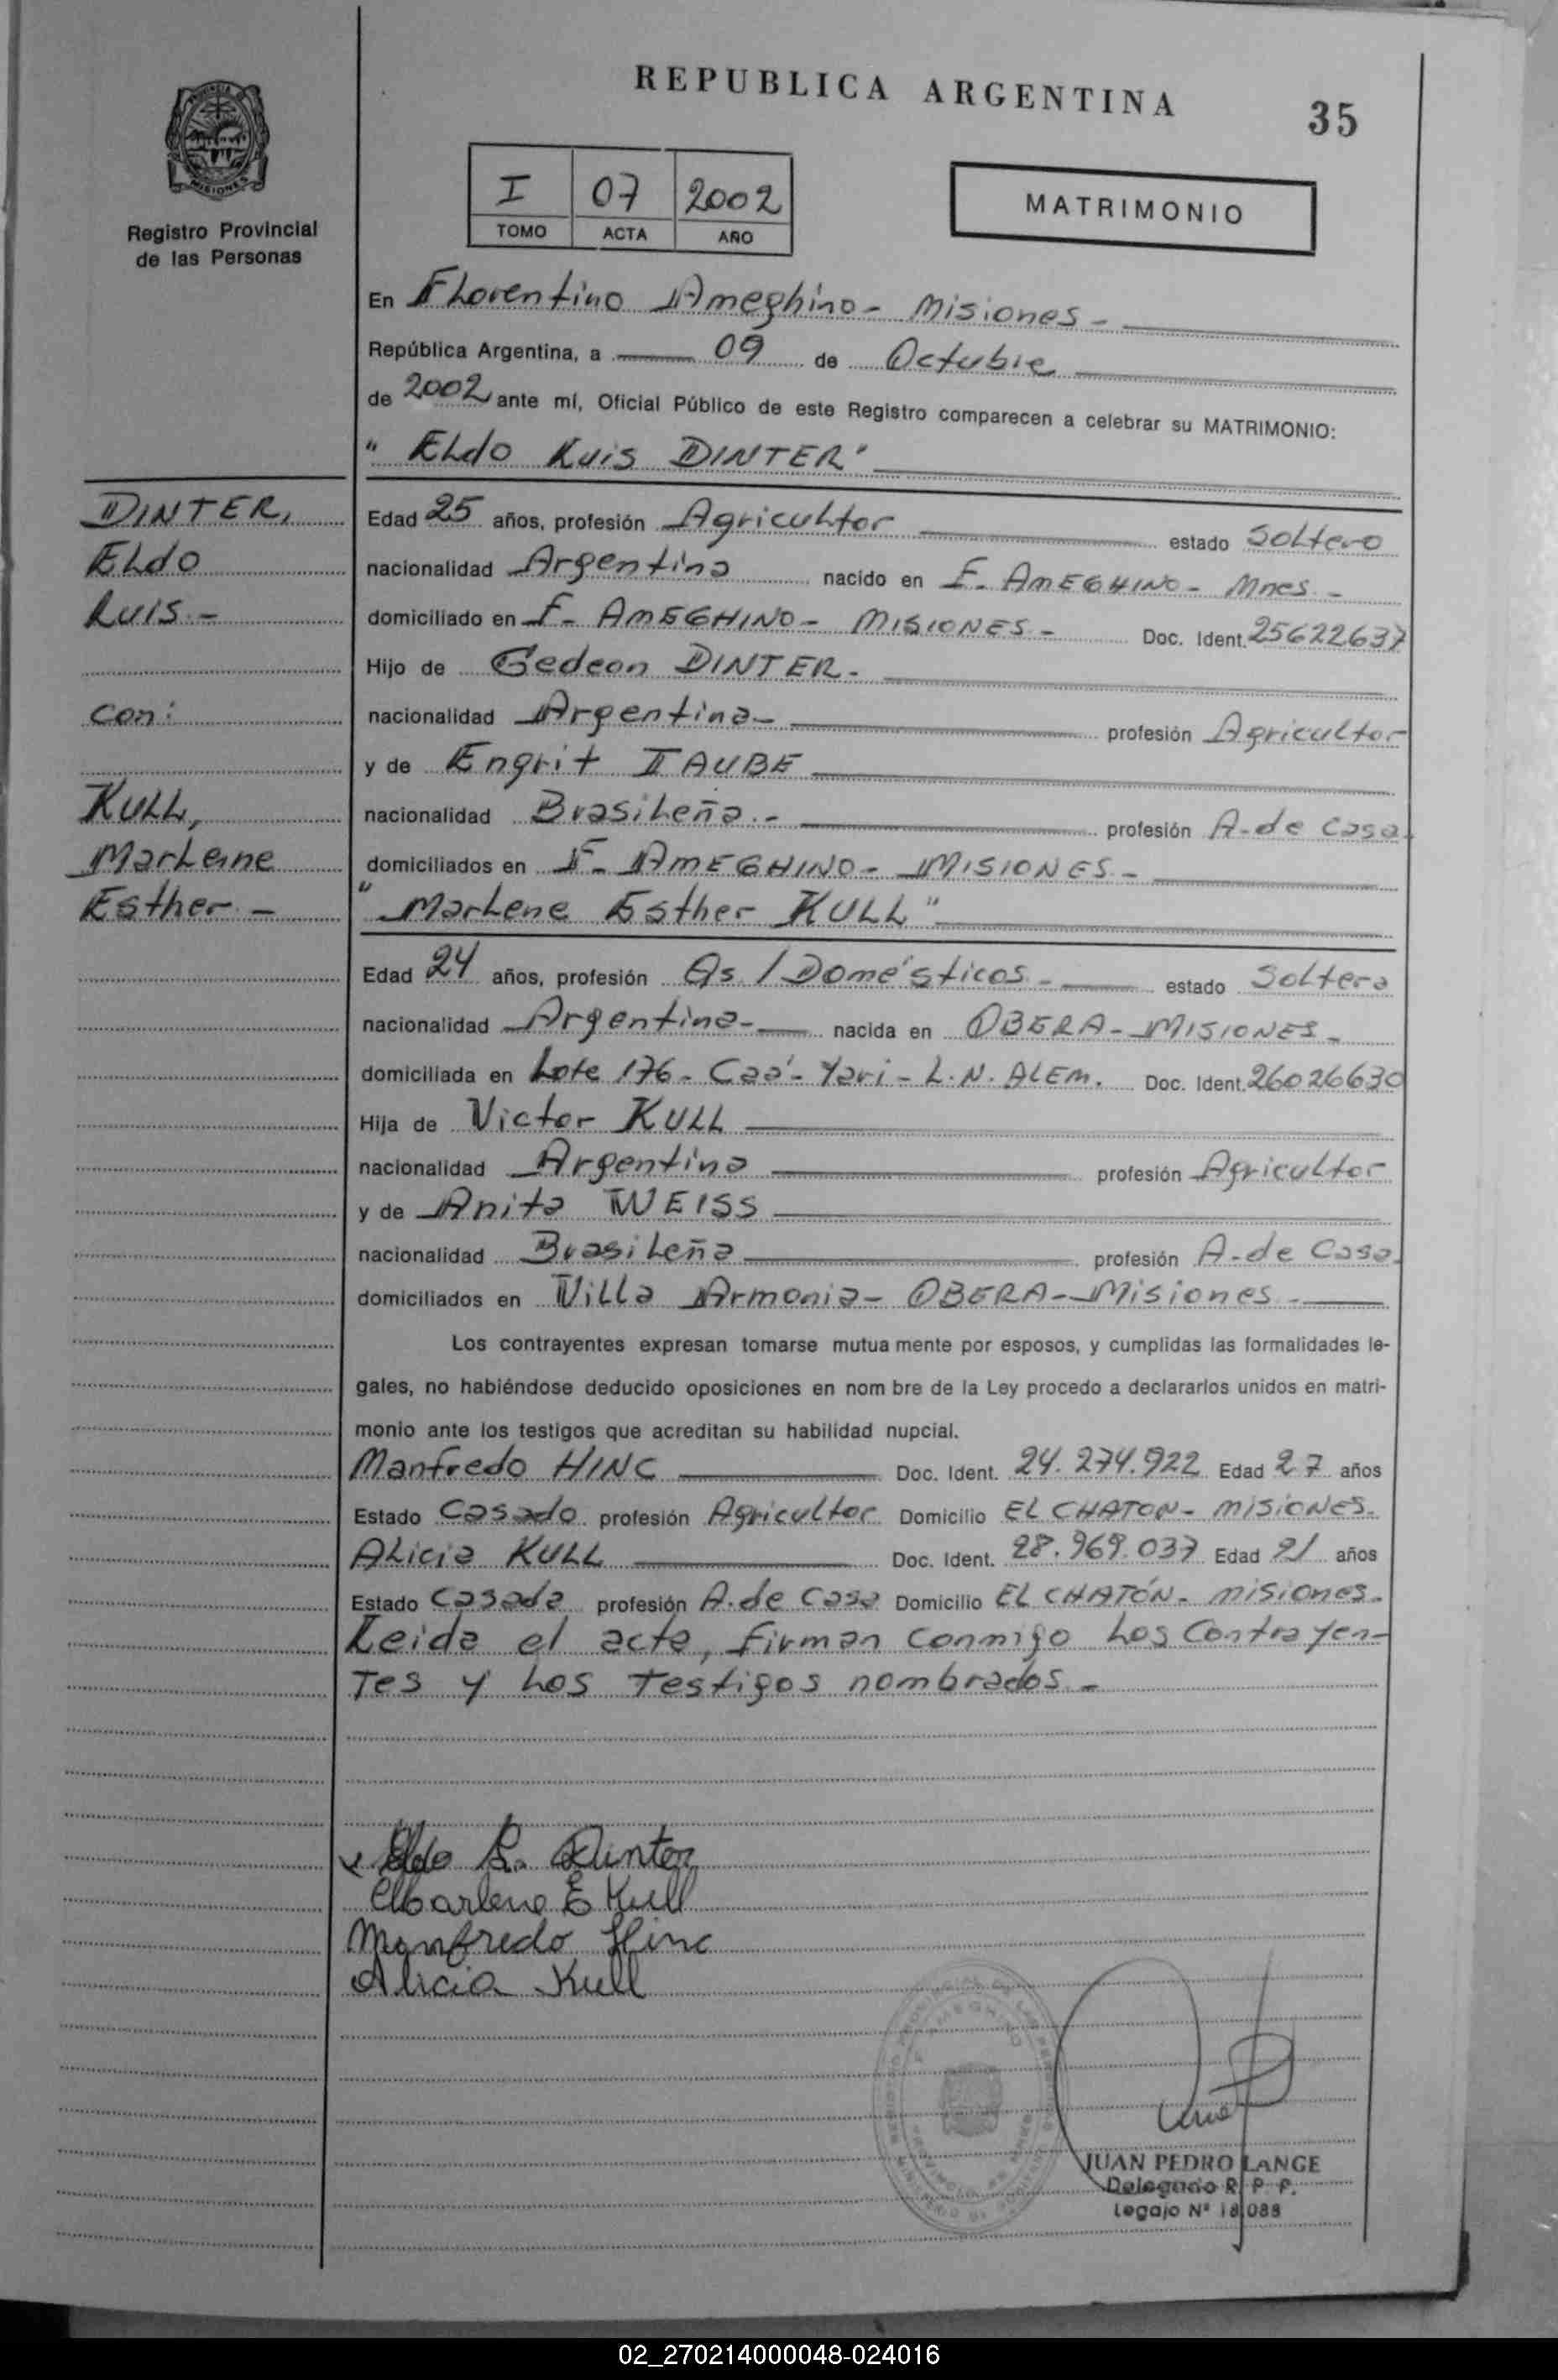 REPUBLICA ARGENTINA
35
I 07 2002
TOMO ACTA AÑO
MATRIMONIO
MISIONES
Registro Provincial
de las Personas
En Florentino Ameghino- Misiones-
República Argentina, a 09 de Octubre
de 2002 ante mí, Oficial Público de este Registro comparecen a celebrar su MATRIMONIO:
"Eldo Luis DINTER"
DINTER,
Eldo
Luis.-
con:
KULL,
Marlene
Esther-
Edad 25 años, profesión Agricultor estado Soltero
nacionalidad Argentina nacido en F. AMEGHINO- Mnes.-
domiciliado en F- AMEGHINO- MISIONES- Doc. Ident. 25622637
Hijo de Gedeon DINTER-
nacionalidad Argentina- profesión Agricultor
y de Engrit TAUBE
nacionalidad Brasileña.- profesión A-de casa.
domiciliados en F- AMEGHINO- MISIONES-
"Marlene Esther KULL"
Edad 24 años, profesión Qs/Domésticos- estado Soltera
nacionalidad Argentina- nacida en OBERA- MISIONES-
domiciliada en Lote 176- Caá-Yari- L.N. ALEM. Doc. Ident. 26026630
Hija de Victor KULL
nacionalidad Argentina profesión Agricultor
y de Anita WEISS
nacionalidad Brasileña profesión A-de Casa.
domiciliados en Villa Armonia- OBERA- Misiones-
Los contrayentes expresan tomarse mutua mente por esposos, y cumplidas las formalidades le-
gales, no habiéndose deducido oposiciones en nom bre de la Ley procedo a declararlos unidos en matri-
monio ante los testigos que acreditan su habilidad nupcial.
Manfredo HINC Doc. Ident. 24.274.922 Edad 27 años
Estado Casado profesión Agricultor Domicilio EL CHATON- MISIONES-
Alicia KULL Doc. Ident. 28.969.037 Edad 21 años
Estado Casada profesión A.de Casa Domicilio EL CHATÓN- misiones-
Leida el acta, firman conmigo los Contrayen-
tes y los Testigos nombrados-
Eldo L. Dinter
Marlene E Kull
Manfredo Hinc
Alicia Kull
JUAN PEDRO LANGE
Delegado R. P. P.
Legajo Nº 18.088
02_270214000048-024016